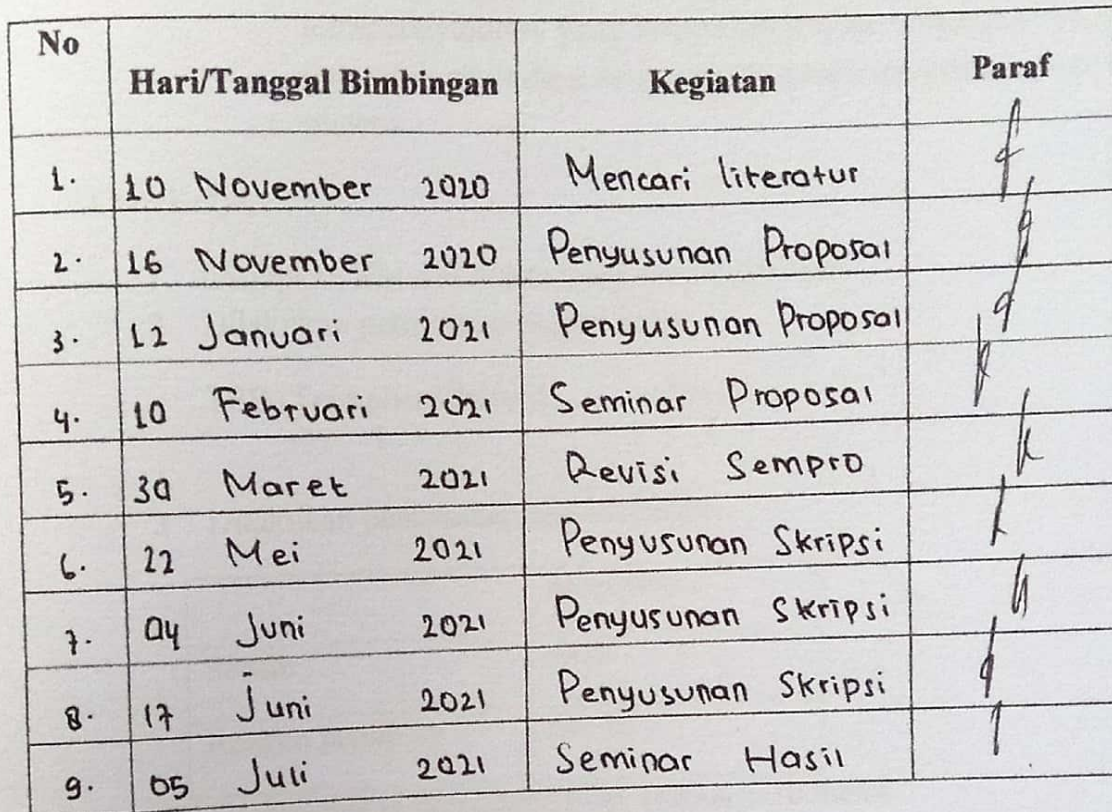 No Hari/Tanggal Bimbingan Kegiatan Paraf
1. 10 November 2020 Mencari literatur
2. 16 November 2020 Penyusunan Proposal
3. 12 Januari 2021 Penyusunan Proposal
4. 10 Februari 2021 Seminar Proposal
5. 30 Maret 2021 Revisi Sempro
6. 22 Mei 2021 Penyusunan Skripsi
7. 04 Juni 2021 Penyusunan Skripsi
8. 17 Juni 2021 Penyusunan Skripsi
9. 05 Juli 2021 Seminar Hasil